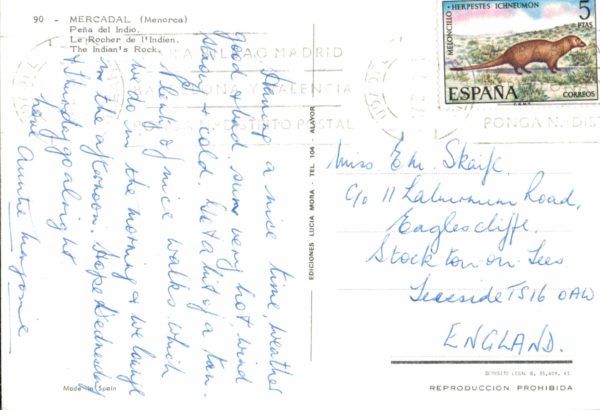 90 - MERCADAL (Menorca)
Peña del Indio.
Le Rocher de l'Indien.
The Indian's Rock.
Having a nice time, weather
good & bad, sun very hot, wind
strong & cold. Got a bit of a tan.
Plenty of nice walks which
we do in the morning & we lounge
in the afternoon. Hope Wednesday
& Thursday go alright
love Auntie Marjorie
Made in Spain
EDICIONES LUCIA MORA - TEL 104 - ALAYOR
MELONCILLO - HERPESTES ICHNEUMON
5
PTAS
ESPAÑA
CORREOS
MADRID
VALENCIA
POSTAL
PONGA N. DIST
Miss E M. Skaife.
C/o 11 Laburnum Road,
Eaglescliffe.
Stockton-on-Tees
Teesside TS16 0AW
ENGLAND.
DEPOSITO LEGAL B.
REPRODUCCION PROHIBIDA